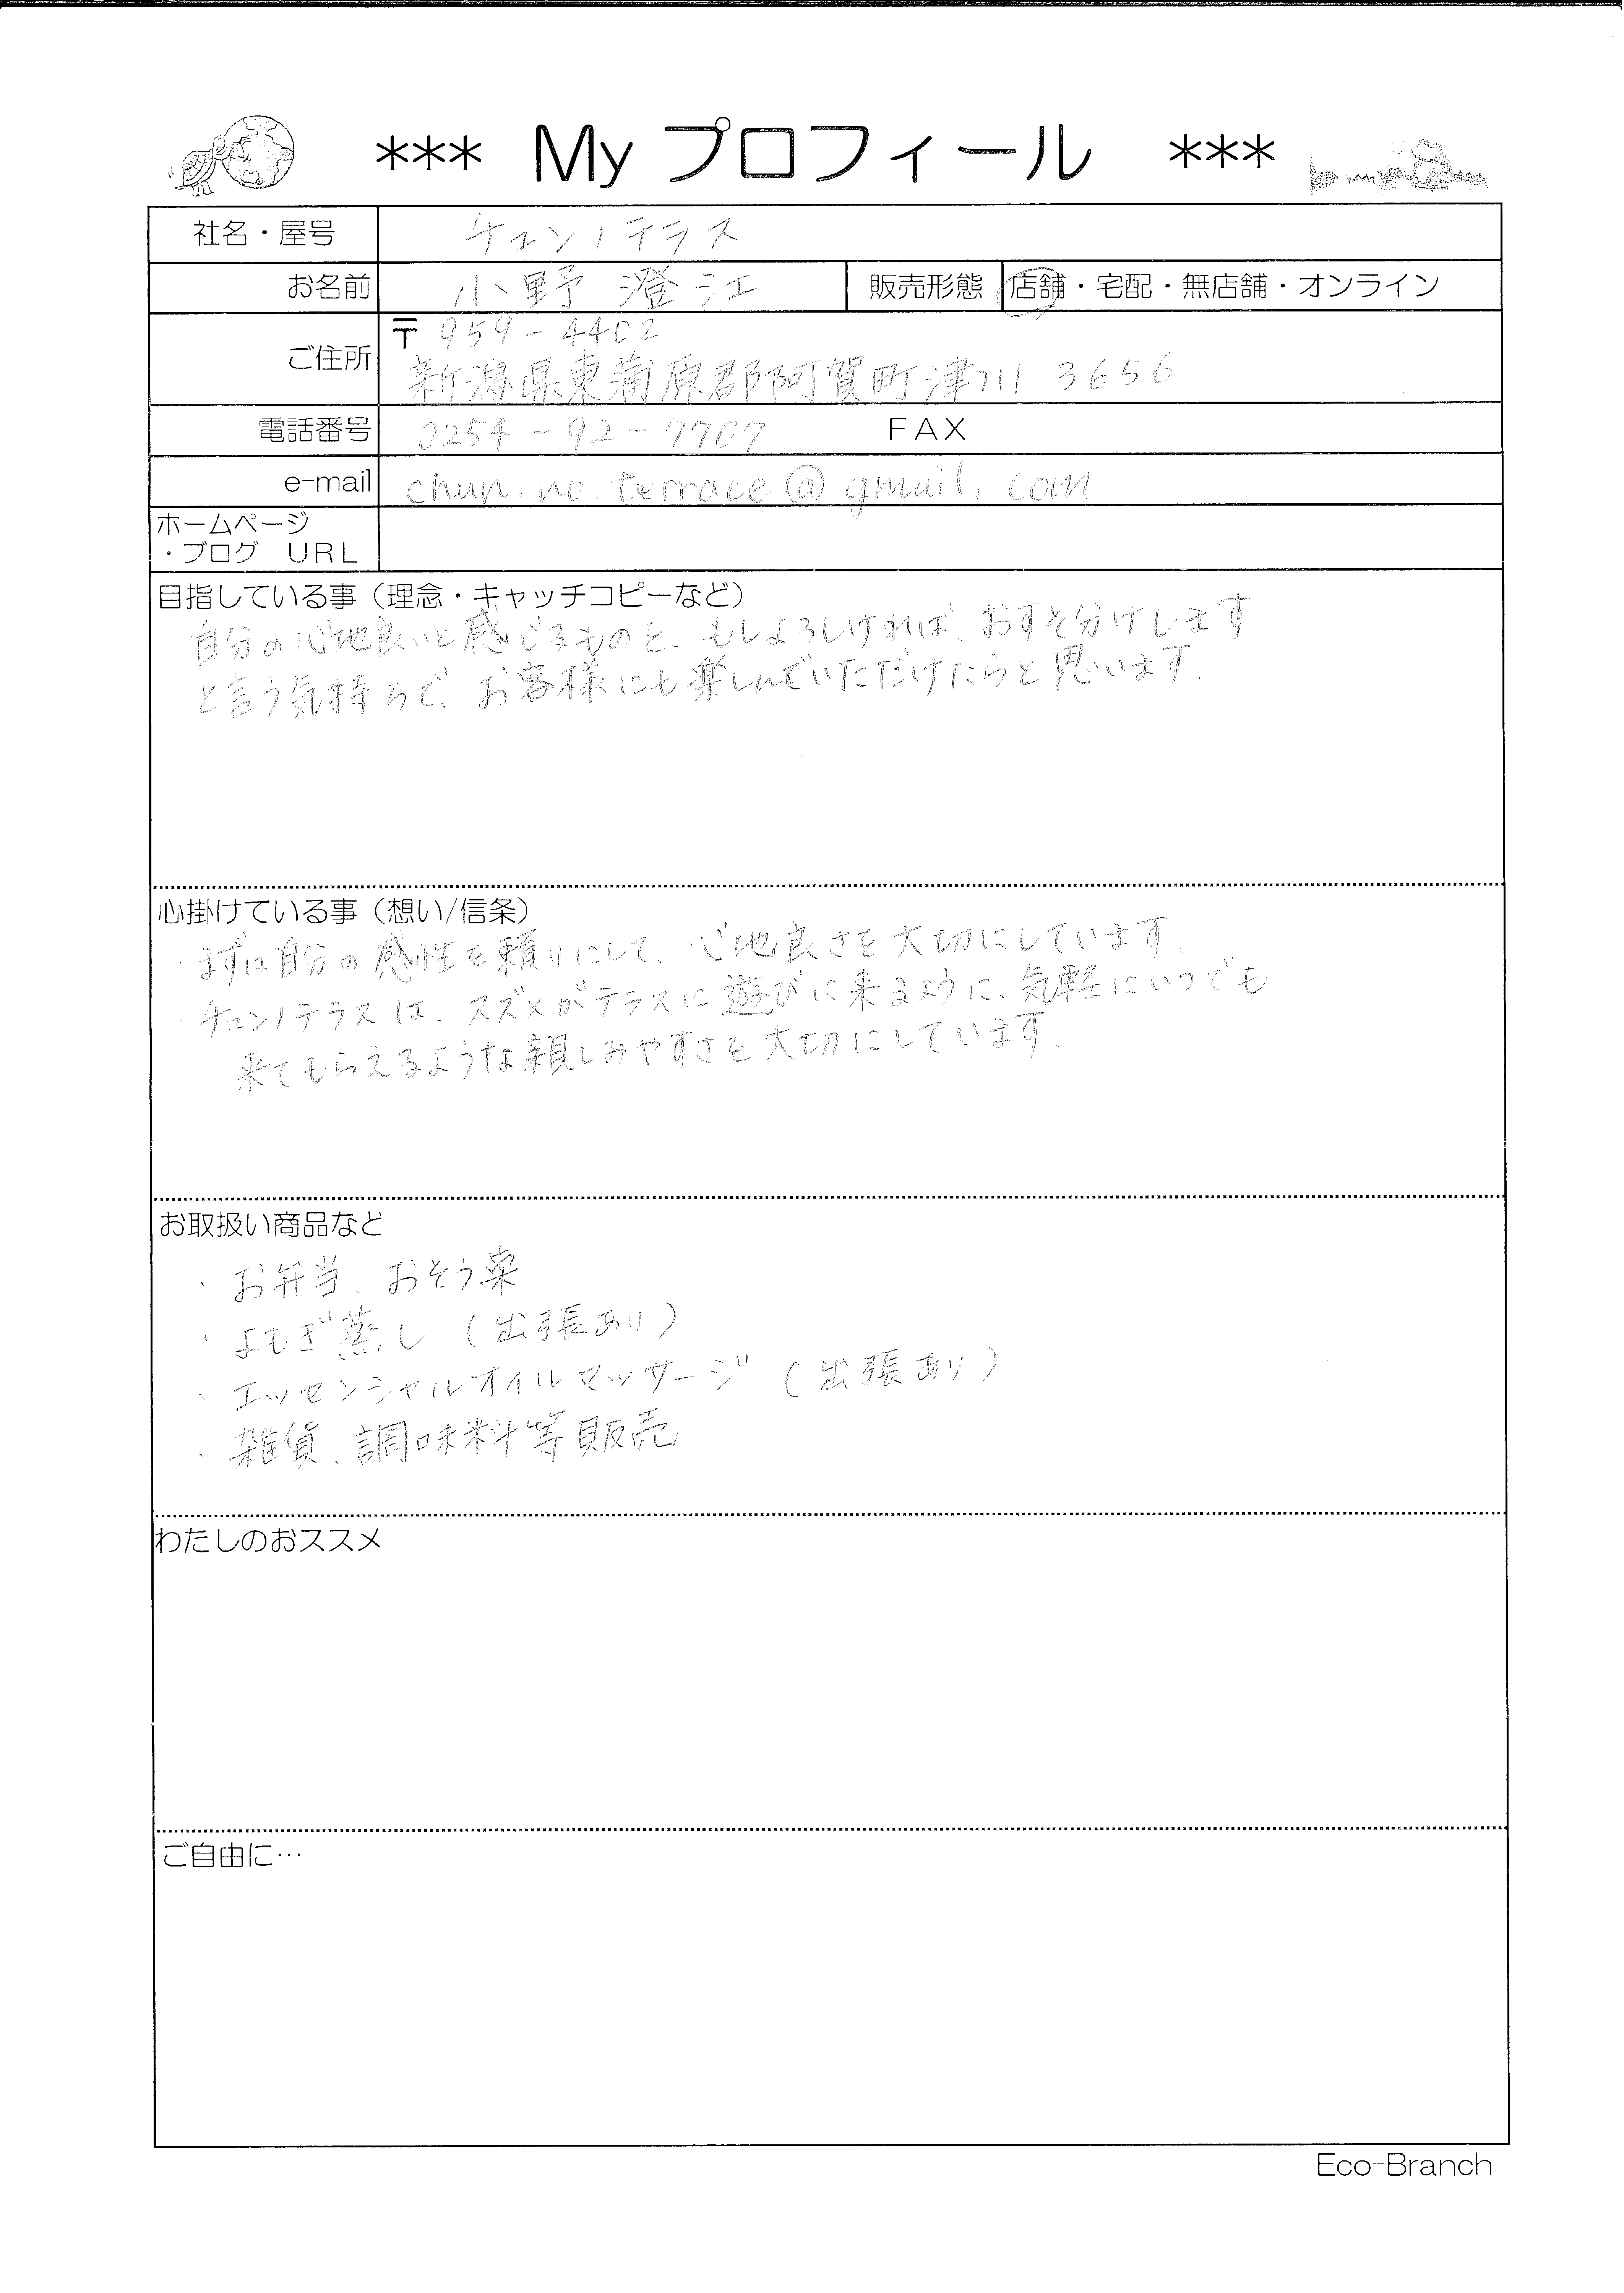 *** My プロフィール ***
社名・屋号 チュンノテラス
お名前 小野 澄江 販売形態 店舗・宅配・無店舗・オンライン
ご住所 〒 959-4402
新潟県東蒲原郡阿賀町津川 3656
電話番号 0254-92-7707 FAX
e-mail chun.no.terrace@gmail.com
ホームページ
・ブログ URL
目指している事（理念・キャッチコピーなど）
自分の心地良いと感じるものを、もしよろしければ、おすそ分けします。
と言う気持ちで、お客様にも楽しんでいただけたらと思います。
心掛けている事（想い/信条）
・まずは自分の感性を頼りにして、心地良さを大切にしています。
・チュンノテラスは、スズメがテラスに遊びに来るように、気軽にいつでも
来てもらえるような親しみやすさを大切にしています。
お取扱い商品など
・お弁当、おそう菜
・よもぎ蒸し（出張あり）
・エッセンシャルオイルマッサージ（出張あり）
・雑貨、調味料等販売
わたしのおススメ
ご自由に…
Eco-Branch